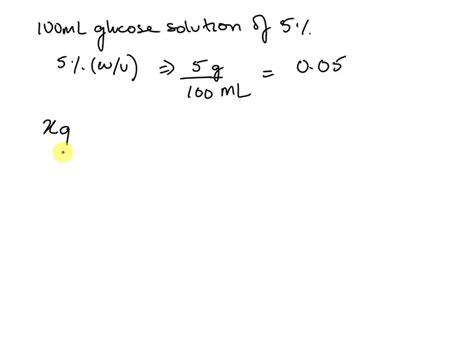 100mL glucose solution of 5%
5% (w/v) ⇒ 5 g / 100 mL = 0.05
xg